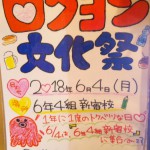 ロクヨン
文化祭
2018年 6月4日(月)
6年4組 新宿校
1年に1度のトクベツな日♡
6/4は、6年4組新宿校
に集合〜!!